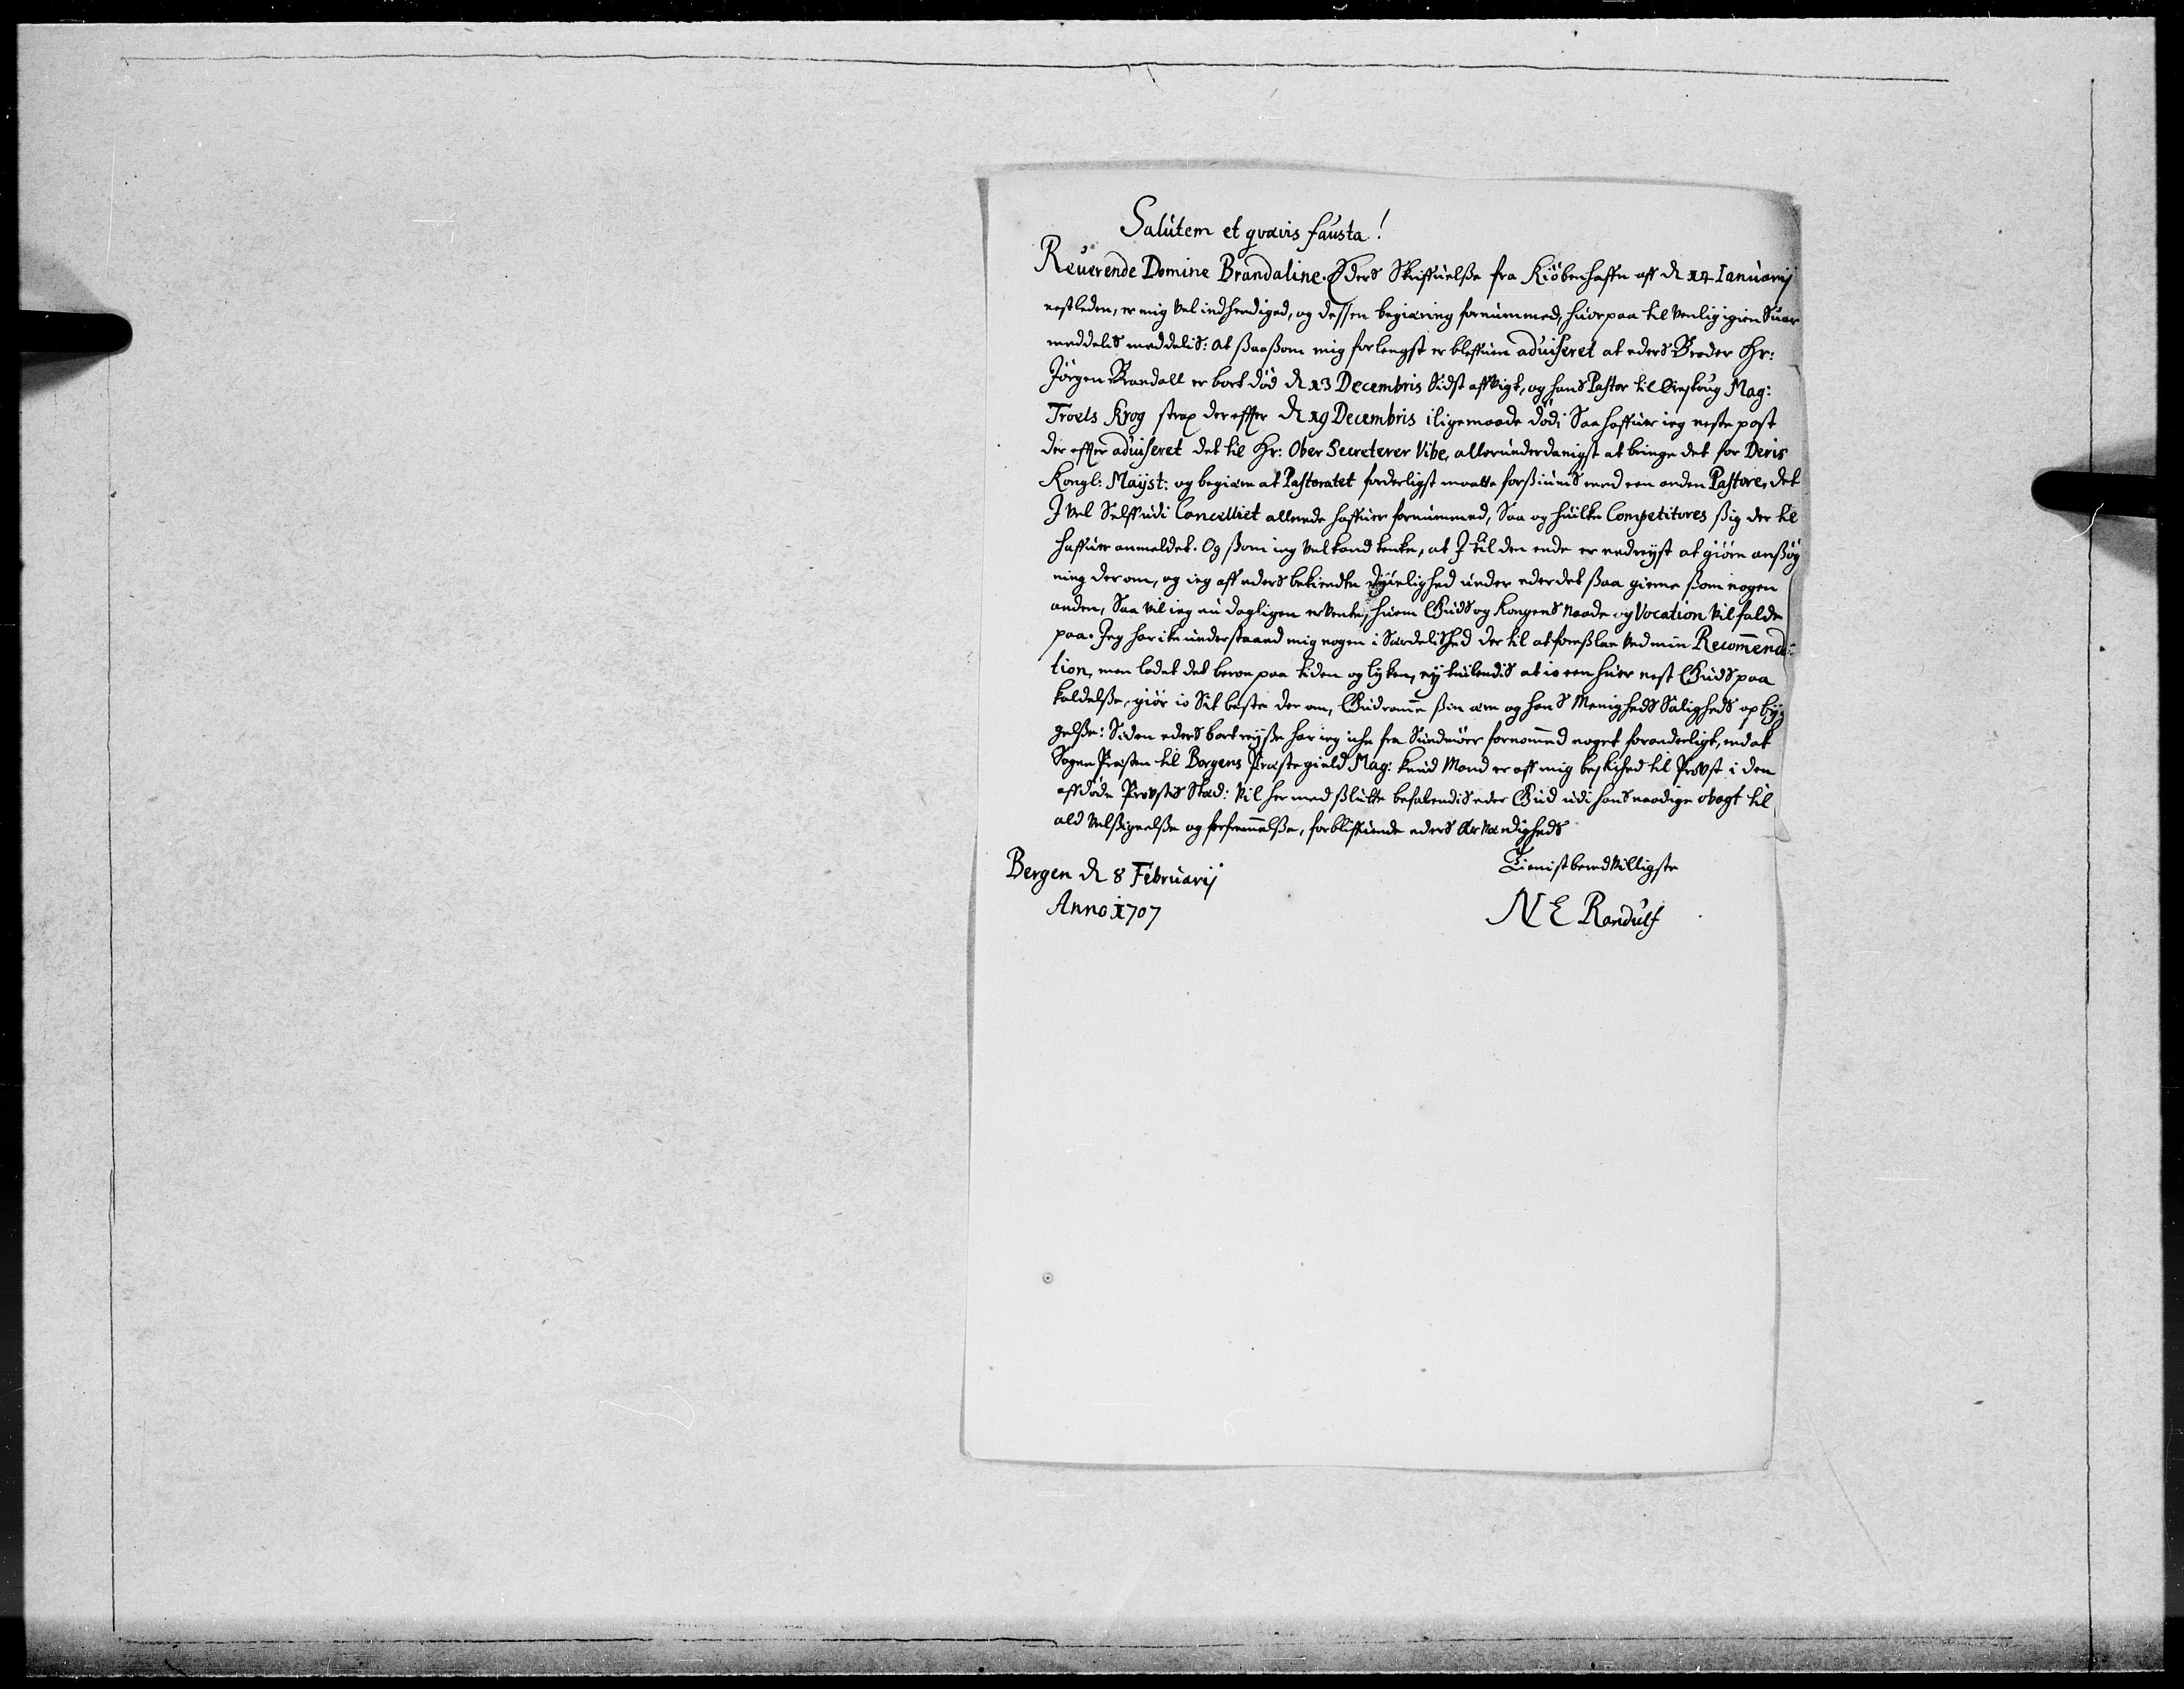 Salutem et qvævis fausta!
Reverende Domine Brandaline. Eders Skriffuelße fra Kiöbenhaffn aff d 14 Ianuarij
nestleden, er mig vel indhendiged, og dessen begiæring fornummed, huorpaa til venlig igien Suar
meddelis meddelis: at ßaaßom mig forlengst er bleffuen adviseret at eders Broder Hr:
Jörgen Brandall er bort död d 13 Decembris Sidst affvigt, og hans Pastor til Örskoug Mag:
Troels Krog strax der effter d 19 Decembris iligemaade död; Saa haffuer ieg neste post
der effter adviseret det til Hr: Ober Secreterer Vibe, allerunderdanigst at bringe det for Deris
Kongl: Mayst: og begiære at Pastoratet forderligst maatte forßiunes med een anden Pastore, det
I vel Selff udi Cancelliet allerede haffuer fornummed, Saa og huilke Competitores ßig der til
haffuer anmeldet. Og ßom ieg vel kand tenke, at I til den ende er nedreyst at giöre anßög
ning der om, og ieg aff eders bekiendte dyuelighed under eder det ßaa gierne ßom nogen
anden, Saa vil ieg nu dagligen ervente, huem Guds og Kongens Naade og Vocation vil falde
paa. Jeg har ike understaaed mig nogen i Særdelished der til at foreßlaa ved min Recommenda-
tion, men ladet det beroe paa tiden og lyken, ey tuilendis at io een huer nest Guds paa
kaldelße, giör io Sit beste der om, Gud ramme ßin ære og hans Menigheds Saligheds opbyg
gelße: Siden eders bortreyße har ieg iche fra Sundmöer fornommed noget foranderligt, end at
Sogne Præsten til Borgens Præstegield Mag: Knud Mand er aff mig beskiked til Provst i den
affdöde Provstis Sted: Vil her med ßlutte befalendis eder Gud udi hans naadige obagt til
ald velßignelße og forfremmelße, forbliffuende eders Ærværdigheds
Bergen d 8 Februarij
Anno 1707
Tienistberedvilligste
N E Randulf